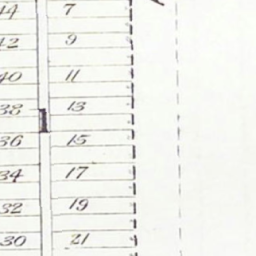 44 7
42 9
40 11
38 13
1
36 15
34 17
32 19
30 21